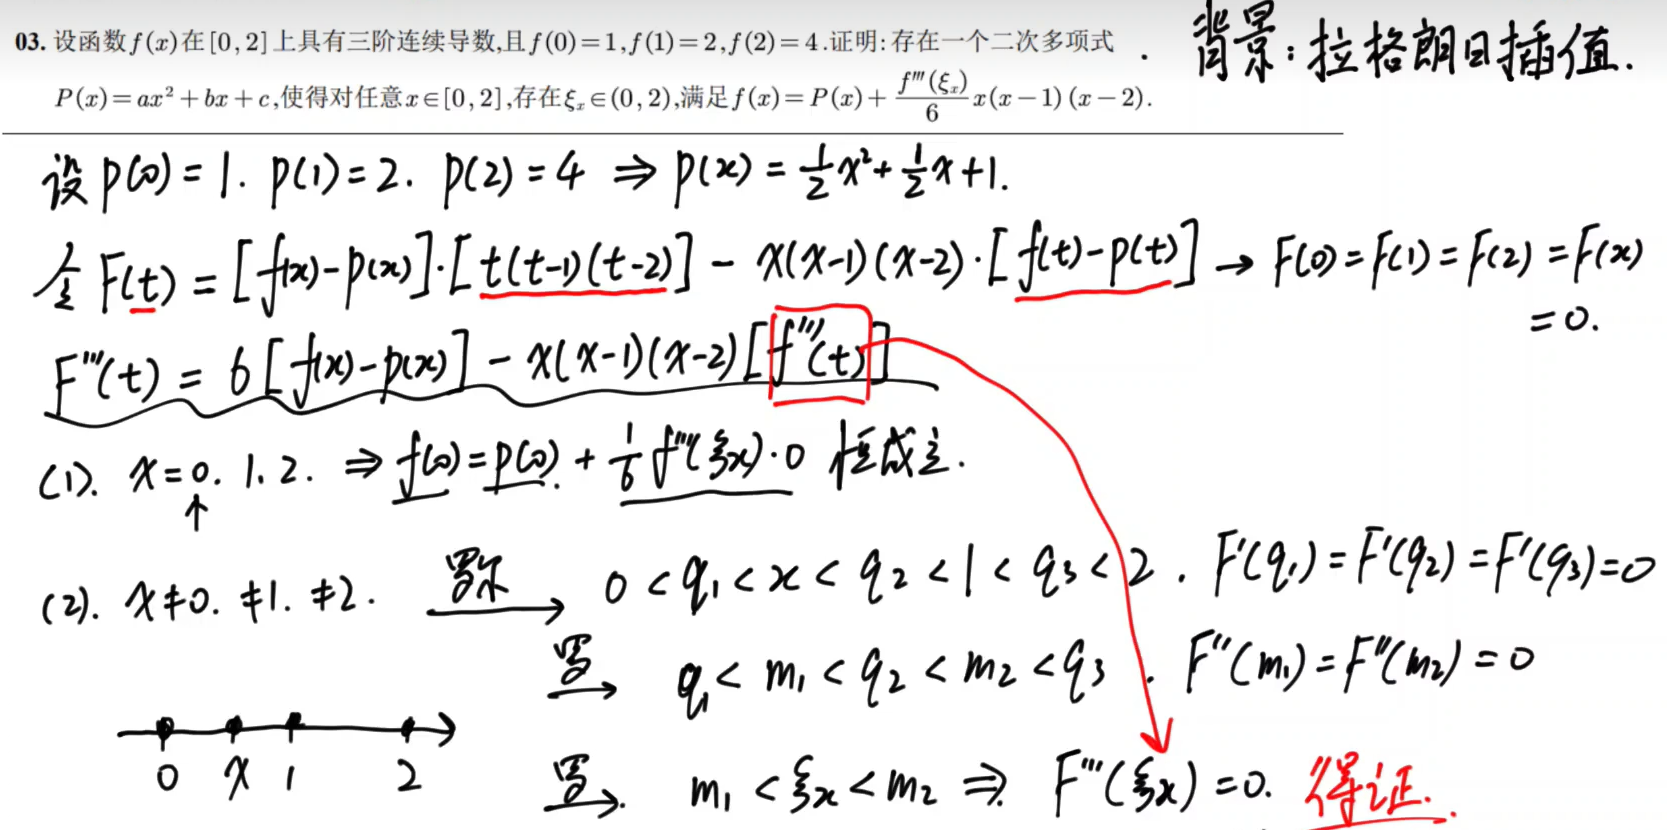 03. 设函数f(x)在[0,2]上具有三阶连续导数,且f(0)=1,f(1)=2,f(2)=4.证明:存在一个二次多项式
P(x)=ax²+bx+c,使得对任意x∈[0,2],存在ξₓ∈(0,2),满足f(x)=P(x)+\frac{f'''(ξₓ)}{6}x(x-1)(x-2).
背景:拉格朗日插值.
设 p(0)=1. p(1)=2. p(2)=4 ⇒ p(x)=\frac{1}{2}x²+\frac{1}{2}x+1.
令 F(t)=[f(x)-p(x)]·[t(t-1)(t-2)] - x(x-1)(x-2)·[f(t)-p(t)] → F(0)=F(1)=F(2)=F(x)
=0.
F'''(t)=6[f(x)-p(x)] - x(x-1)(x-2)[f'''(t)]
(1). x=0. 1. 2. ⇒ f(0)=p(0)+\frac{1}{6}f'''(ξx)·0 恒成立.
↑
(2). x≠0. ≠1. ≠2. 罗尔→ 0<q₁<x<q₂<1<q₃<2. F'(q₁)=F'(q₂)=F'(q₃)=0
罗→ q₁<m₁<q₂<m₂<q₃. F''(m₁)=F''(m₂)=0
0 x 1 2
罗→. m₁<ξx<m₂ ⇒ F'''(ξx)=0. 得证.